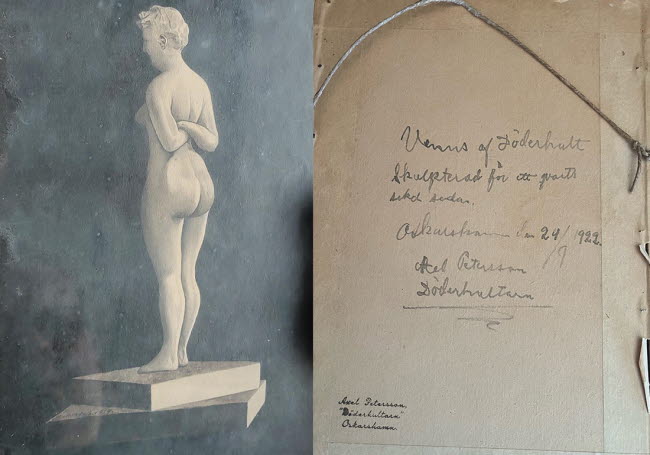 Venus af Döderhult
Skulpterad för ett qvarts
sekel sedan.
Oskarshamn den 24/9 1922.
Axel Petersson
Döderhultarn
Axel Petersson.
"Döderhultarn"
Oskarshamn.